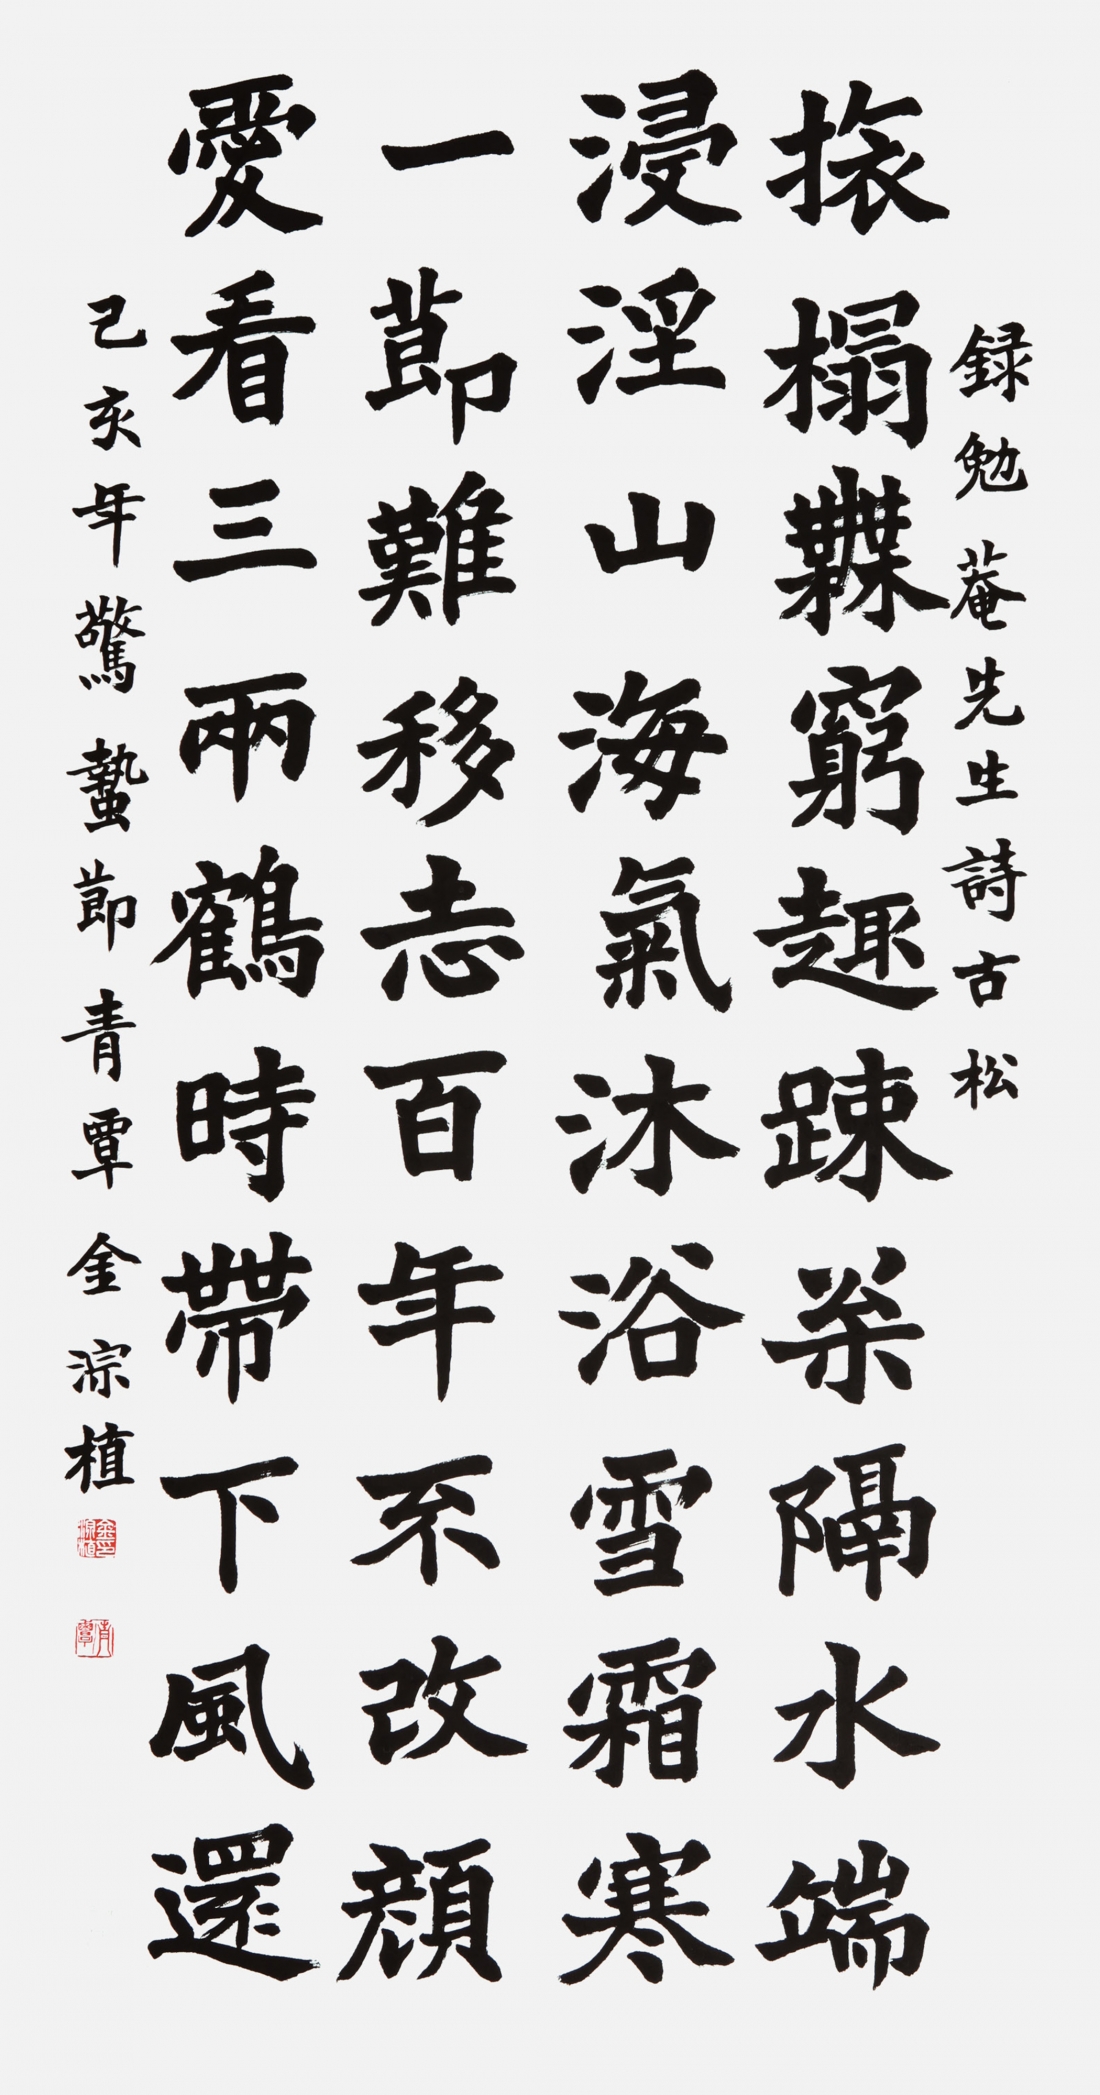 録勉菴先生詩古松
挔榻橆窮趣踈枀隔水端
浸淫山海氣沐浴雪霜寒
一莭難移志百年不改顔
愛看三兩鶴時帶下風還
己亥年驚蟄莭青覃金淙植
金淙植印
青覃